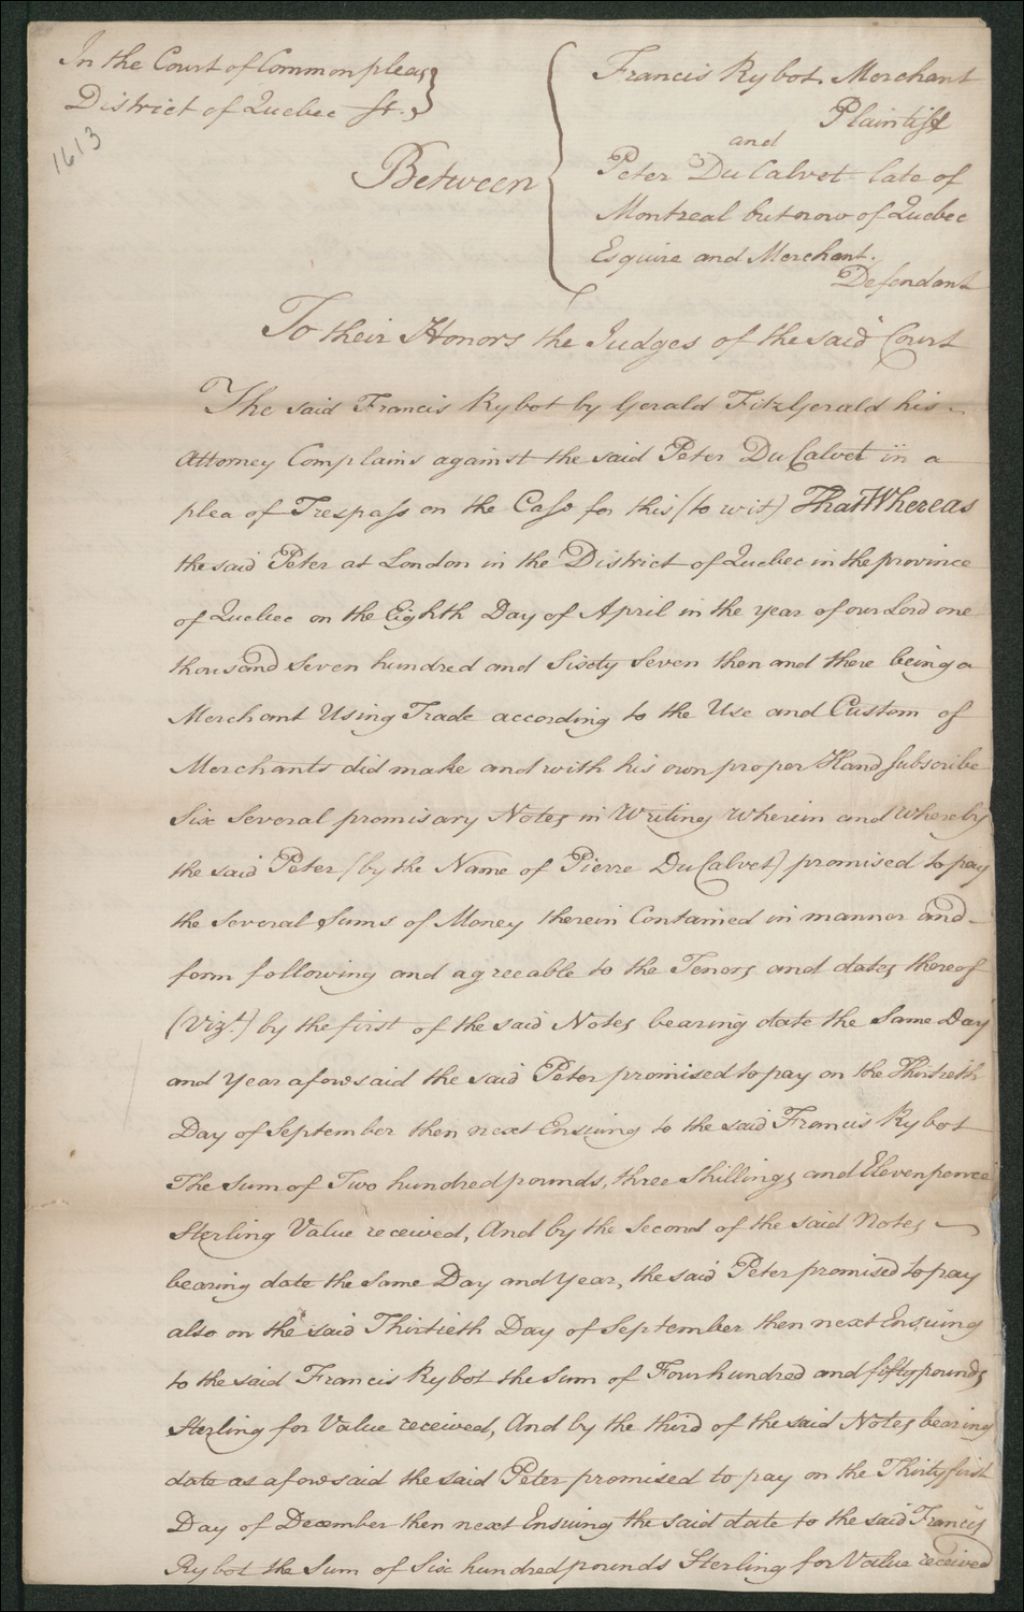 In the Court of Common pleas }
District of Quebec ss. }
1613
Between
Francis Rybot. Merchant
Plaintiff
and
Peter Du Calvet late of
Montreal but now of Quebec
Esquire and Merchant.
Defendant
To their Honors the Judges of the said Court
The said Francis Rybot by Gerald FitzGerald his
Attorney Complains against the said Peter Du Calvet in a
plea of Trespass on the Case for this (to wit) That Whereas
the said Peter at London in the District of Quebec in the province
of Quebec on the Eighth Day of April in the year of our Lord one
thousand Seven hundred and Sixty Seven then and there being a
Merchant Using Trade according to the Use and Custom of
Merchants did make and with his own proper Hand Subscribe
Six Several promisary Notes in Writing Wherein and Whereby
the said Peter (by the Name of Pierre Du Calvet) promised to pay
the Several Sums of Money therein Contained in manner and
form following and agreeable to the Tenors and dates thereof
(Vizt.) by the first of the said Notes bearing date the Same Day
and Year aforesaid the said Peter promised to pay on the Thirtieth
Day of September then next Ensuing to the said Francis Rybot
The Sum of Two hundred pounds, three Shillings and Elevenpence
Sterling Value received, And by the Second of the said Notes
bearing date the Same Day and Year, the said Peter promised to pay
also on the said Thirtieth Day of September then next Ensuing
to the said Francis Rybot the Sum of Four hundred and fifty pounds
Sterling for Value received, And by the third of the said Notes bearing
date as aforesaid the said Peter promised to pay on the Thirty first
Day of December then next Ensuing the said date to the said Francis
Rybot the Sum of Six hundred pounds Sterling for Value received